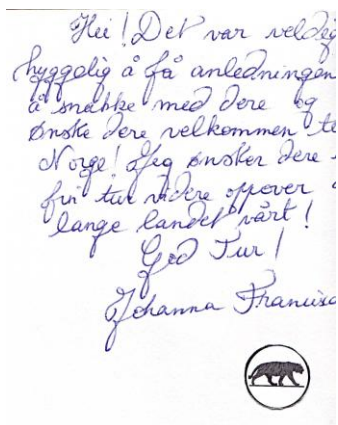 Hei! Det var veldig
hyggelig å få anledningen
å snakke med dere og
ønske dere velkommen te
Norge! Jeg ønsker dere
fin tur videre oppover
lange landet vårt!
God Tur!
Johanna